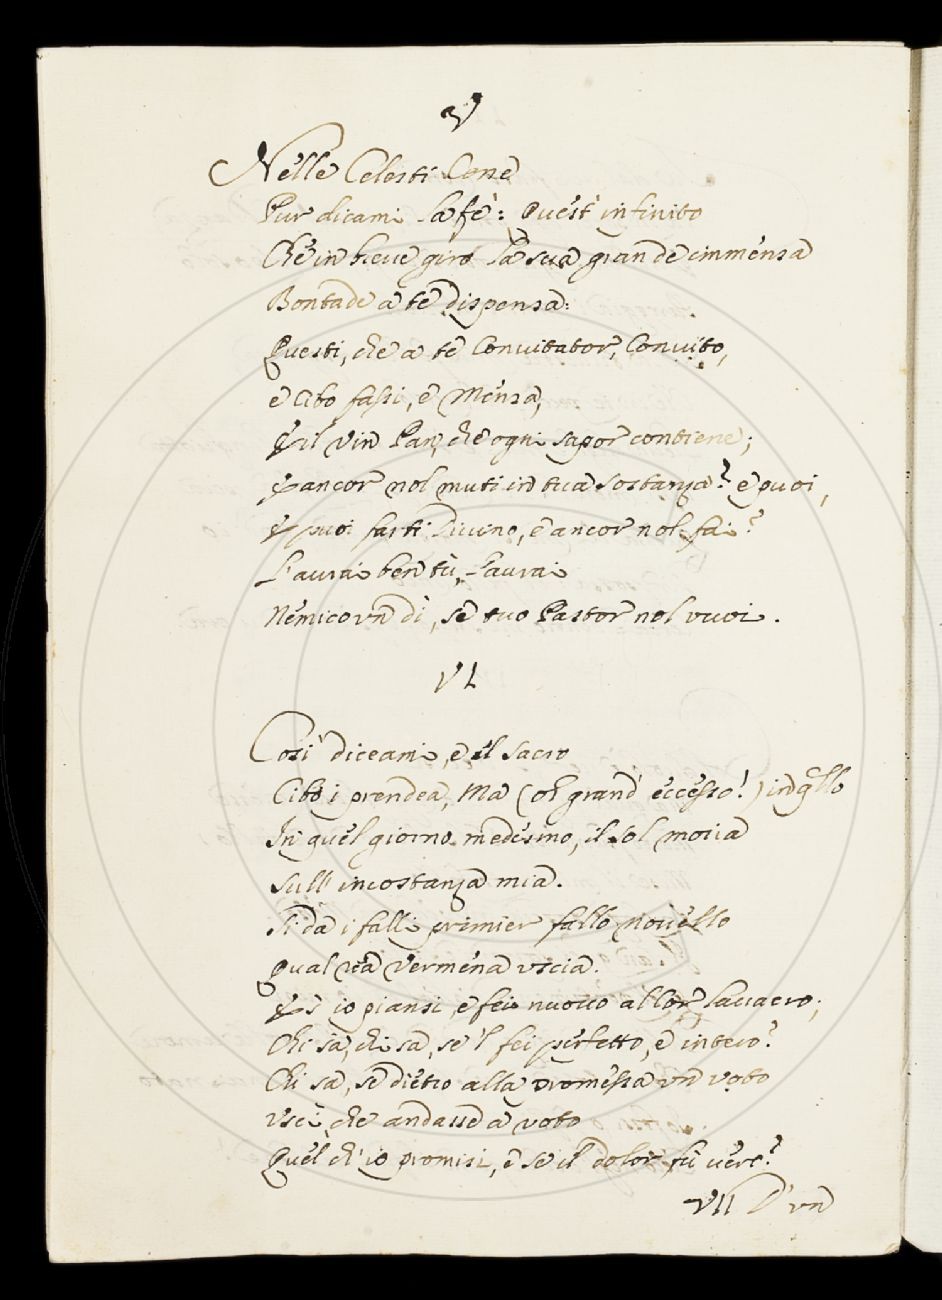 V
Nelle Celesti Cene
Pur dicami la fè: Quest' infinito
Che in breve giro la sua grande immensa
Bontade a te dispensa:
Questi, che a te Convitator, Convito,
e Cibo fassi, e Mensa,
È il vin Pan, che ogni sapor contiene;
E ancor nol muti in tua sostanza? e puoi,
E puoi farti Divino, e ancor nol fai?
L'aurai ben tù, l'aurai
Nemico un dì, se tuo Pastor nol vuoi.
VI
Così diceami, e il sacro
Cibo i prendea, Ma (oh grand' eccesso!) in quello
In quel giorno medesmo, il sol moria
Sull' incostanza mia.
Sì da i falli primier fallo novello
Qual rea Vermena uscia.
E s' io piansi, e fei nuovo allor lavacro;
Chi sa, chi sa, se 'l fei perfetto, e intero?
Chi sa, se dietro alla promessa un voto
Uscì, che andasse a voto
Quel ch' io promisi, e se il dolor fù vero?
VII D' un